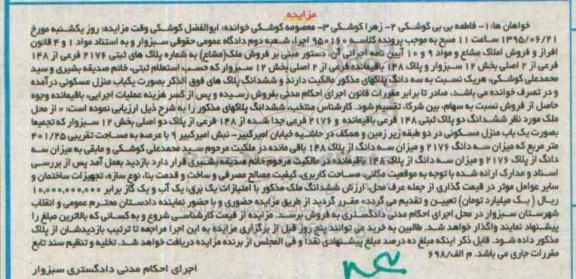 مزایده
خواهان ها: ۱- فاطمه بی بی کوشکی ۲- زهرا کوشکی ۳- معصومه کوشکی خوانده: ابوالفضل کوشکی وقت مزایده: روز یکشنبه مورخ
۱۳۹۵/۰۶/۲۱ ساعت ۱۱ صبح به موجب پرونده کلاسه ۹۵۰۱۶۰ اجرا، شعبه دوم دادگاه عمومی حقوقی سبزوار و به استناد مواد ۱ و ۴ قانون
افراز و فروش املاک مشاع و مواد ۹ و ۱۰ آیین نامه اجرائی آن، دستور مبنی بر فروش ملک(مشاع) به شماره پلاک های ثبتی ۲۱۷۶ فرعی از ۱۴۸
فرعی از ۲ اصلی بخش ۱۲ سبزوار و پلاک ۱۴۸ باقیمانده فرعی از ۲ اصلی بخش ۱۲ سبزوار که حسب استعلام ثبتی، خانم صدیقه بشیری و سید
محمدعلی کوشکی، هریک نسبت به سه دانگ پلاکهای مذکور مالکیت دارند و ششدانگ پلاک های فوق الذکر بصورت یکباب منزل مسکونی در آمده
و در تصرف خوانده می باشد، صادر تا برابر مقررات قانون اجرای احکام مدنی بفروش رسیده و پس از کسر هزینه عملیات اجرایی، باقیمانده وجوه
حاصل از فروش نسبت به سهام، بین شرکا، تقسیم شود. کارشناس منتخب، ششدانگ پلاکهای مذکور را به شرح ذیل ارزیابی نموده است: « از محل
ملک مورد نظر ششدانگ دو پلاک ثبتی ۱۴۸ فرعی باقیمانده و ۲۱۷۶ فرعی جدا شده از ۱۴۸ فرعی از پلاک دو اصلی بخش ۱۲ سبزوار که تجمیعا
بصورت یک باب منزل مسکونی در دو طبقه زیر زمین و همکف در حاشیه خیابان امیرکبیر- نبش امیرکبیر ۹ با عرصه به مساحت تقریبی ۴۰۱/۲۵
متر مربع که میزان سه دانگ ۲۱۷۶ و میزان سه دانگ از پلاک ۱۴۸ باقی مانده در ملکیت مرحوم سید محمدعلی کوشکی و مابقی به میزان سه
دانگ از پلاک ۲۱۷۶ و میزان سه دانگ از پلاک ۱۴۸ باقیمانده در مالکیت مرحوم خانم صدیقه بشیری قرار دارد بازدید بعمل آمد پس از بررسی
اسناد و مدارک ارائه شده با توجه به موقعیت مکانی، مساحت کاربری، کیفیت مصالح مصرفی و ساخت و قدمت بنا، نوع سازه، تجهیزات ساختمان و
سایر عوامل موثر در قیمت گذاری از جمله عرف محل، ارزش ششدانگ ملک مذکور با امتیازات یک برق، یک آب و یک گاز برابر ۱۰,۰۰۰,۰۰۰,۰۰۰
ریال ( یک میلیارد تومان) تعیین و تقدیم می گردد» مقرر گردید از طریق مزایده حضوری و با حضور نماینده دادستان محترم عمومی و انقلاب
شهرستان سبزوار در محل اجرای احکام مدنی دادگستری به فروش برسد. مزایده از قیمت کارشناسی شروع و به کسانی که بالاترین مبلغ را
پیشنهاد نمایند واگذار خواهد شد. طالبین به خرید می توانند پنج روز قبل از برگزاری مزایده به این اجرا مراجعه تا ترتیب بازدیدشان از پلاک
مذکور داده شود. قابل ذکر اینکه مبلغ ده درصد مبلغ پیشنهادی نقدا و فی المجلس از برنده مزایده دریافت خواهد شد. تخلیه و تنظیم سند تابع
مقررات جاری می باشد. م الف/۶۹۸
اجرای احکام مدنی دادگستری سبزوار